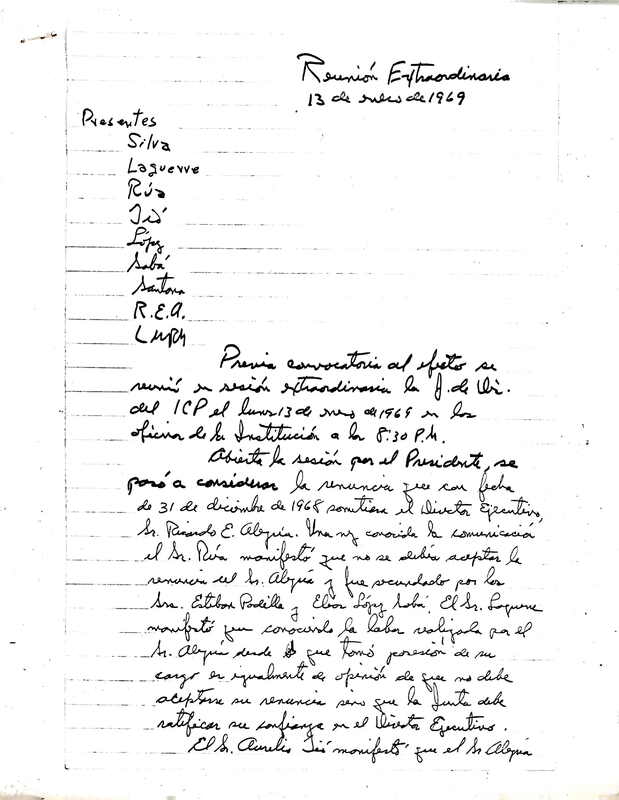 Reunión Extraordinaria
13 de enero de 1969
Presentes
Silva
Laguerre
Rúa
Tió
López
Sabá
Santana
R.E.A.
Previa convocatoria al efecto se
reunió en sesión extraordinaria la J. de Di.
del ICP el lunes 13 de enero de 1969 en las
oficinas de la Institución a las 8:30 P.M.
Abierta la sesión por el Presidente, se
pasó a considerar la renuncia que con fecha
de 31 de diciembre de 1968 sometiera el Director Ejecutivo,
Sr. Ricardo E. Alegría. Una vez conocida la comunicación
el Sr. Rúa manifestó que no se debía aceptar la
renuncia del Sr. Alegría y fue secundado por los
Sres. Esteban Padilla y López Sabá. El Sr. Laguerre
manifestó que conociendo la labor realizada por el
Sr. Alegría desde que tomó posesión de su
cargo es igualmente de opinión de que no debe
aceptarse su renuncia sino que la Junta debe
ratificar su confianza en el Director Ejecutivo.
El Sr. Aurelio Tió manifestó que el Sr. Alegría